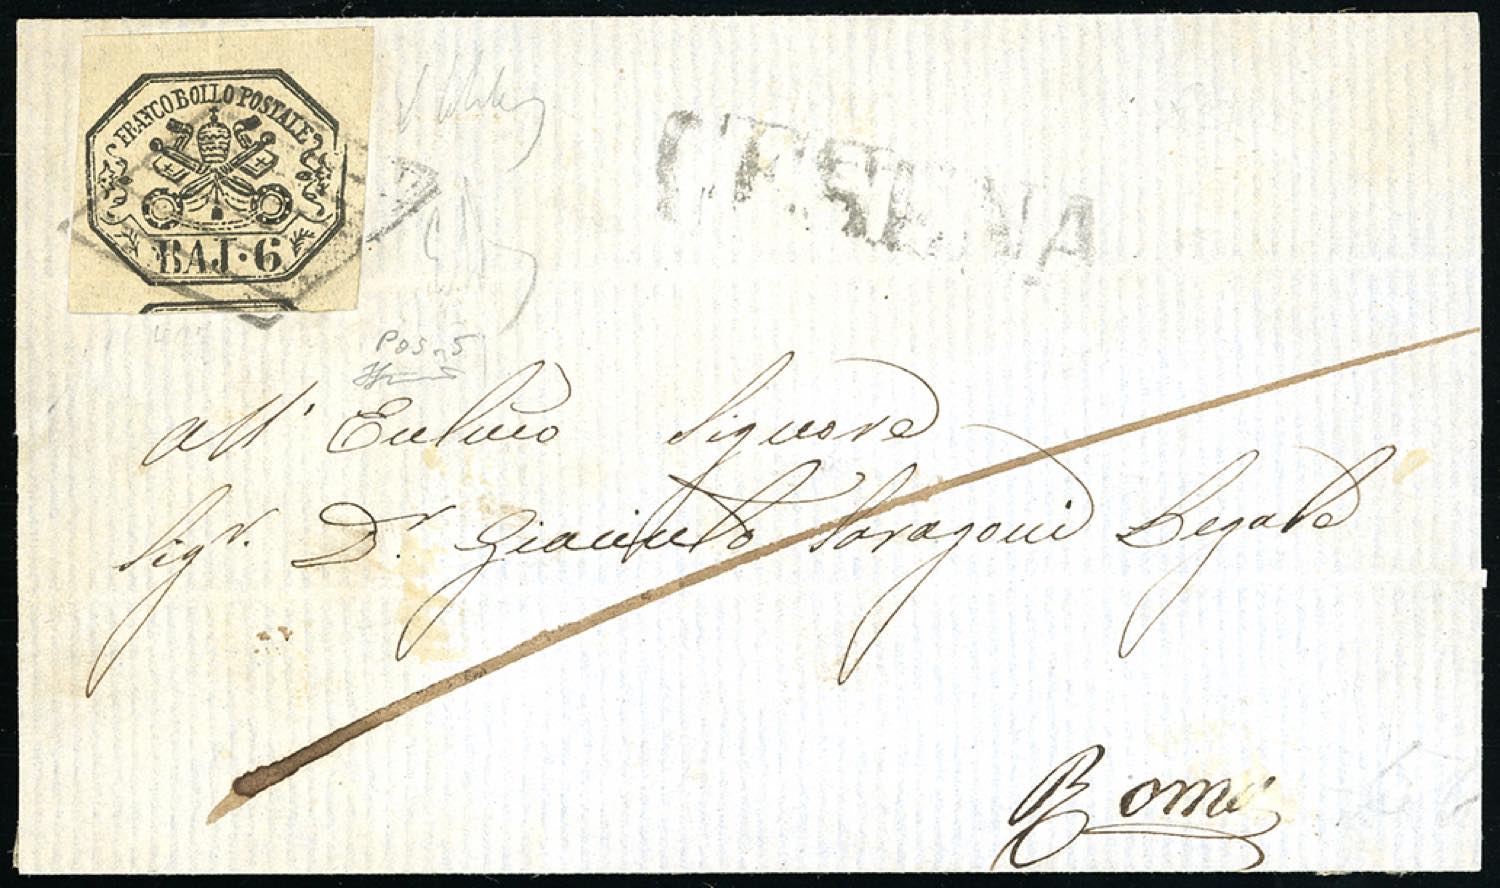 FRANCO BOLLO POSTALE
BAJ·6
CESENA
Pos n 5
All' Signore
Sigr. Dr. Giacinto Saragoni Legale
Roma